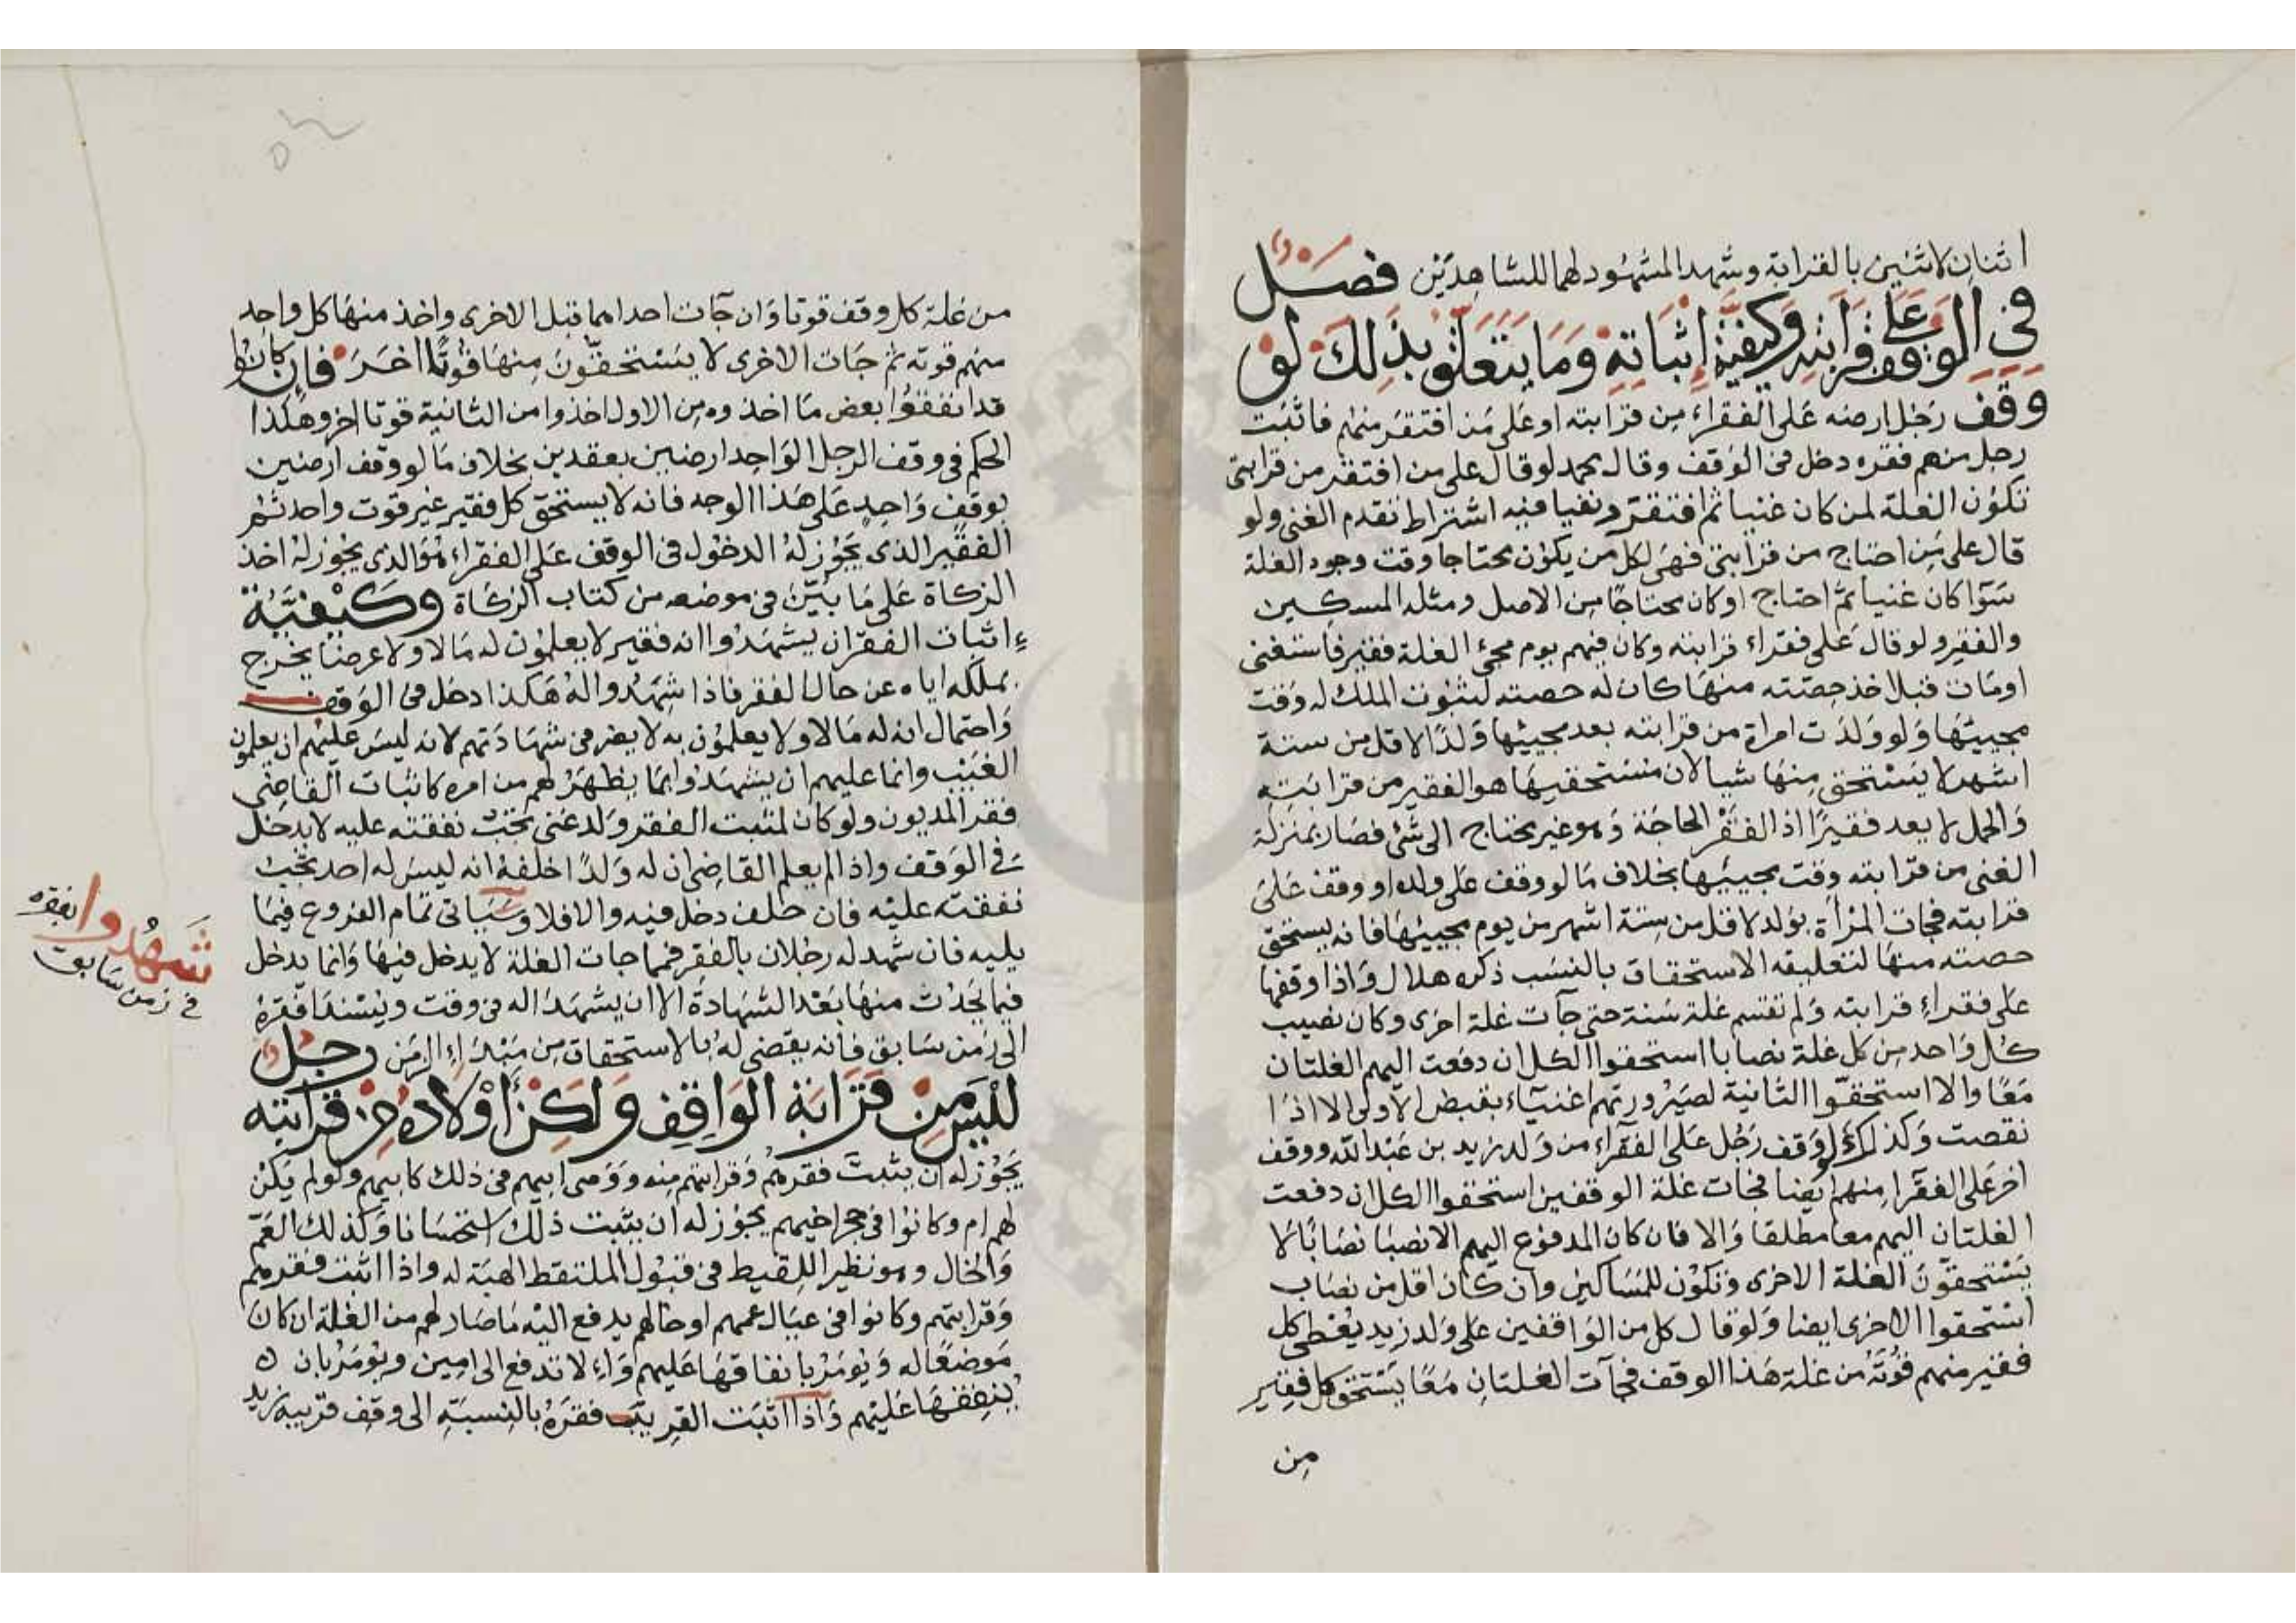 اثنان لاثنين بالقرابة وشهد المشهود لهما للشاهدين فصل
في الوقف على فقراء قرابته وكيفية إثباته وما يتعلق بذلك لو
وقف رجل ارضه على الفقراء من قرابته او على من افتقر منهم فاثبت
رجل منهم فقره دخل في الوقف وقال محمد لو قال على من افتقر من قرابتي
تكون الغلة لمن كان غنيا ثم افتقر ونفيا فيه اشتراط تقدم الغنى ولو
قال على من احتاج من قرابتي فهي لكل من يكون محتاجا وقت وجود الغلة
سوا كان غنيا ثم احتاج او كان محتاجا من الاصل ومثله المسكين
والفقير ولو قال على فقراء قرابته وكان فيهم يوم مجئ الغلة فقير فاستغنى
او مات قبل اخذ حصته منها كان له حصته لثبوت الملك له وقت
مجيئها ولو ولدت امراة من قرابته بعد مجيئها ولدا لاقل من ستة
اشهر لا يستحق منها شيا لان مستحقيها هو الفقير من قرابته
والحمل لا يعد فقيرا اذ الفقر الحاجة وهو غير محتاج الى شئ فصار بمنزلة
الغني من قرابته وقت مجيئها بخلاف ما لو وقف على ولده او وقف على
قرابته فجات المرأة بولد لاقل من ستة اشهر من يوم مجيئها فانه يستحق
حصته منها لتعليقه الاستحقاق بالنسب ذكره هلال واذا وقفها
على فقراء قرابته ولم تقسم غلة سنة حتى جآت غلة اخرى وكان نصيب
كل واحد من كل غلة نصابا استحقوا الكل ان دفعت اليهم الغلتان
معا والا استحقوا الثانية لصيرورتهم اغنياء بقبض الاولى الا اذا
نقصت وكذلك لو وقف رجل على الفقراء من ولد زيد بن عبد الله ووقف
اخر على الفقرا منهم ايضا فجات غلة الوقفين استحقوا الكل ان دفعت
الغلتان اليهم معا مطلقا والا فان كان المدفوع اليهم الانصبا نصابا لا
يستحقون الغلة الاخرى وتكون للمساكين وان كان اقل من نصاب
استحقوا الاخرى ايضا ولو قال كل من الواقفين على ولد زيد يعطى كل
فقير منهم قوته من غلة هذا الوقف فجآت الغلتان معا يستحق كل فقير
من
من غلة كل وقف قوتا وان جآت احداهما قبل الاخرى واخذ منها كل واحد
منهم قوته ثم جات الاخرى لا يستحقون منها قوتا اخر فان كانوا
قد انفقوا بعض ما اخذوه من الاول اخذوا من الثانية قوتا اخر وهكذا
الحكم في وقف الرجل الواحد ارضين بعقدين بخلاف ما لو وقف ارضين
بوقف واحد على هذا الوجه فانه لا يستحق كل فقير غير قوت واحد ثم
الفقير الذي يجوز له الدخول في الوقف على الفقراء هو الذي يجوز له اخذ
الزكاة على ما بين في موضعه من كتاب الزكاة وكيفية
اثبات الفقر ان يشهدوا انه فقير لا يعلمون له مالا ولا عرضا يخرج
بملكه اياه عن حال الفقر فاذا شهدوا له هكذا دخل في الوقف
واحتمال انه له مالا ولا يعلمون به لا يضر في شهادتهم لانه ليس عليهم ان يعلمون
الغيب وانما عليهم ان يشهدوا بما يظهر لهم من امره كاثبات القاضي
فقر المديون ولو كان لمثبت الفقر ولد غني تجب نفقته عليه لا يدخل
في الوقف واذا لم يعلم القاضي ان له ولدا احلفه انه ليس له احد تجب
نفقته عليه فان حلف دخل فيه والا فلا وسياتي تمام الفروع فيما
يليه فان شهد له رجلان بالفقر فمهما جات الغلة لا يدخل فيها وانما يدخل
فيما يحدث منها بعد الشهادة الا ان يشهدا له في وقت ويسندا فقره
الى زمن سابق فانه يقضى له بالاستحقاق من مبدء الزمن رجل
ليس من قرابة الواقف ولكن أولاده من قرابته
يجوز له ان يثبت فقرهم وقرابتهم منه ووصى ابيهم في ذلك كابيهم ولو لم يكن
لهم ام وكانوا في حجر اخيهم يجوز له ان يثبت ذلك استحسانا وكذلك العم
والخال وهو نظير اللقيط في قبول الملتقط الهبة له واذا اثبت فقرهم
وقرابتهم وكانوا في عيال عمهم او خالهم يدفع اليه ما صار لهم من الغلة ان كان
موضعا له ويؤمر بانفاقها عليهم والا تدفع الى امين ويؤمر بان
ينفقها عليهم واذا اثبت القريب فقره بالنسبة الى وقف قريبه زيد
شهدوا بفقره
في زمن سابق